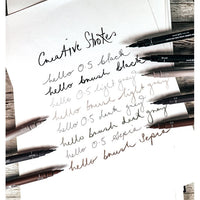 Creative Strokes
hello 0.5 black
hello brush black
hello 0.5 light grey
hello brush light grey
hello 0.5 dark grey
hello brush dark grey
hello 0.5 Sepia
hello brush Sepia